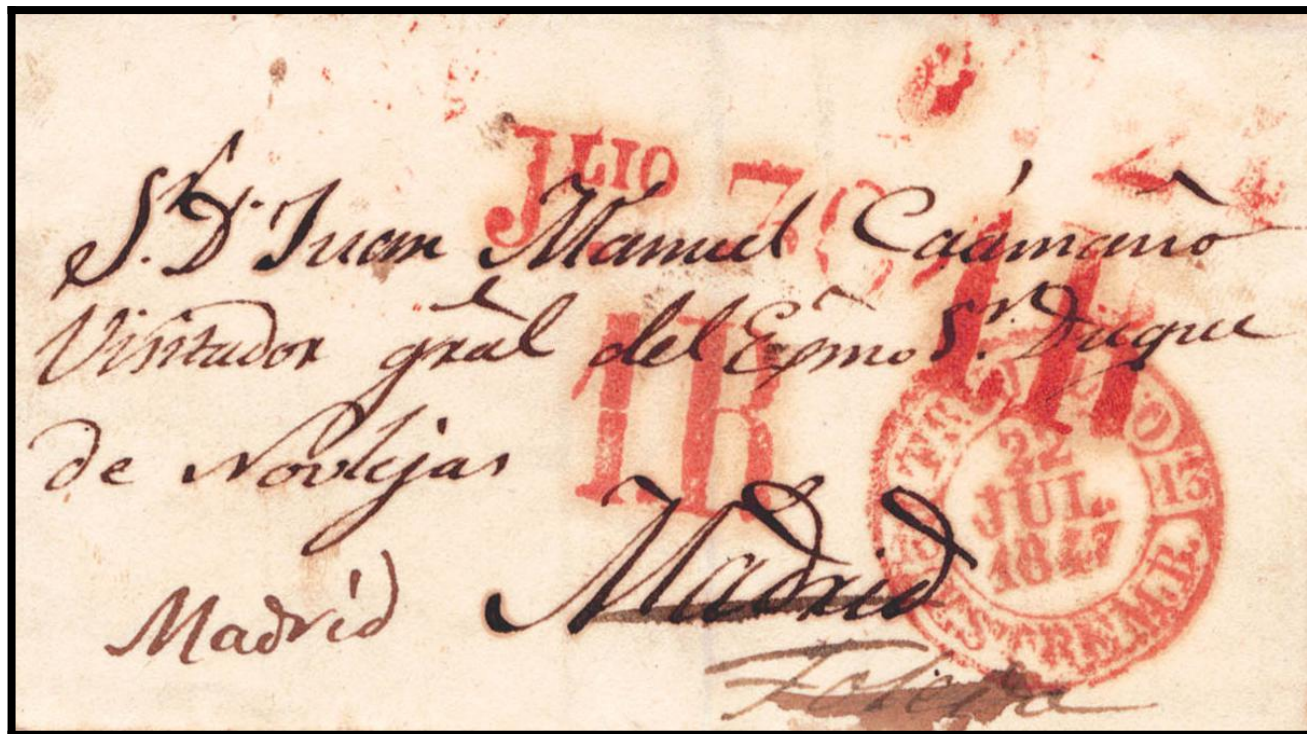 JLIO 78
S.r D.n Juan Manuel Caámaño
Visitador gral del Exmo S.r Duque
de Novlejas
1R
TRUJILLO
13
22
JUL.
1847
13
ESTREM.B.
Madrid
Madrid